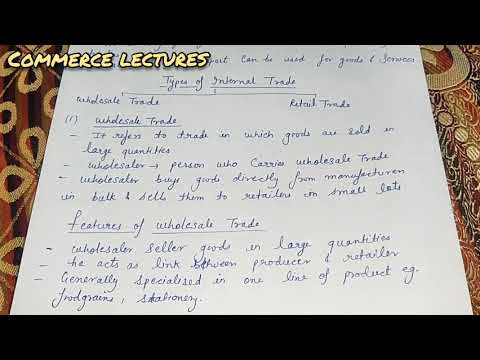 COMMERCE LECTURES
port can be used for goods & services
Types of Internal Trade
wholesale Trade Retail Trade
(1) wholesale Trade
- It refers to trade in which goods are sold in
large quantities
- wholesaler → person who Carries wholesale Trade
- wholesaler buys goods directly from manufacturers
in bulk & sells them to retailers in small lots
Features of wholesale Trade
- wholesaler seller goods in large quantities
- he acts as link between producer & retailer
- Generally specialised in one line of product eg.
foodgrains, stationery.